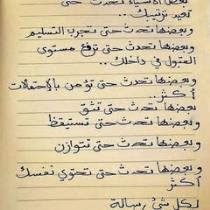 بعض الأشياء تحدث حتى
تعيد ترتيبك..
وبعضها تحدث حتى تجرب التسليم
وبعضها تحدث حتى ترفع مستوى
القبول في داخلك..
وبعضها تحدث حتى تؤمن بالاحتمالات
أكثر..
وبعضها تحدث حتى تثق
وبعضها تحدث حتى تستيقظ
وبعضها تحدث حتى تتوازن
وبعضها تحدث حتى تحتوي نفسك
أكثر
لكل شئ رسالة